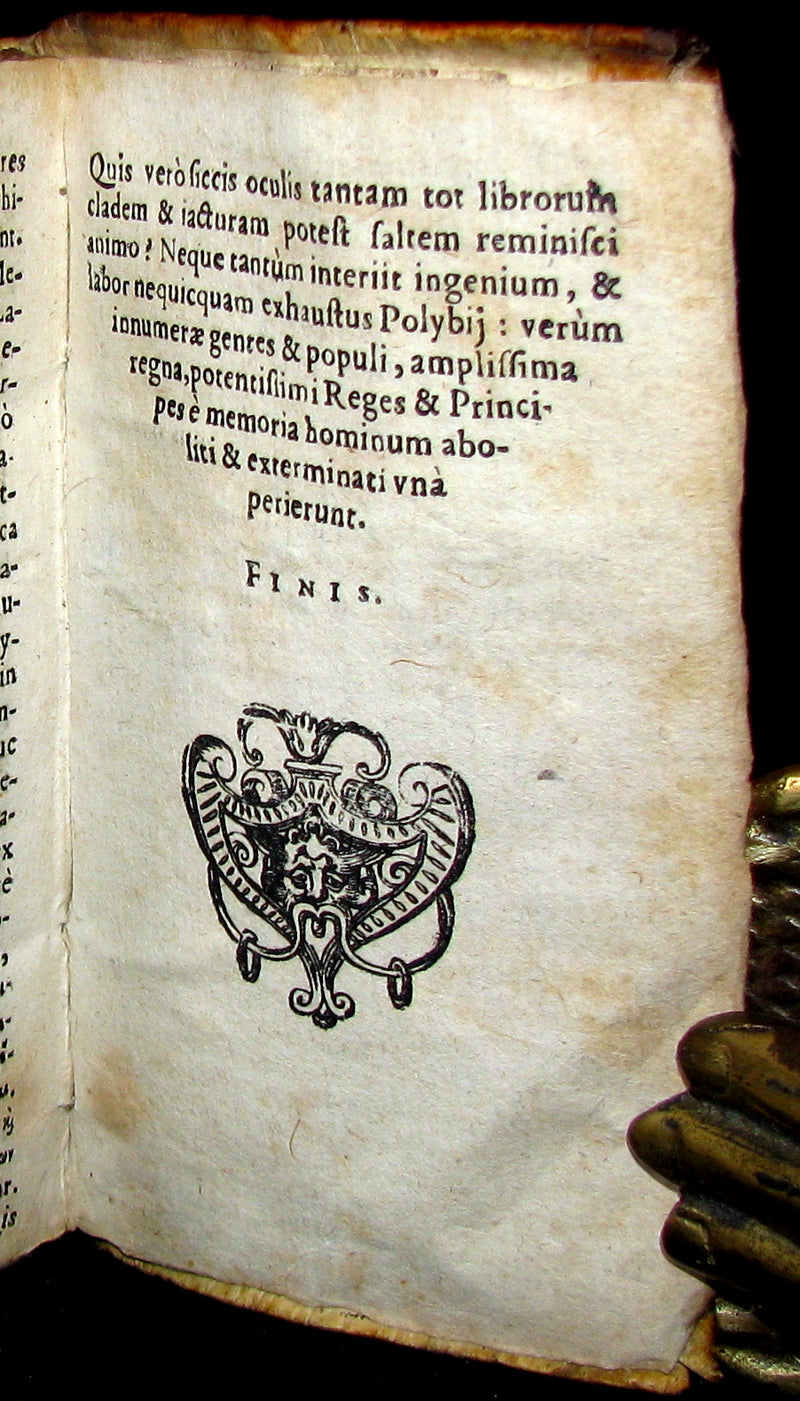 Quis verò ſiccis oculis tantam tot librorum
cladem & iacturam poteſt ſaltem reminiſci
animo? Neque tantùm interiit ingenium, &
labor nequicquam exhauſtus Polybij : verùm
innumeræ gentes & populi, ampliſſima
regna, potentiſſimi Reges & Princi-
pes è memoria hominum abo-
liti & exterminati vnà
perierunt.
FINIS.
res
hi-
nt.
le-
e-
r-
ò
t-
ca
a-
u-
y-
in
n-
e-
a-
x
è
r.
is